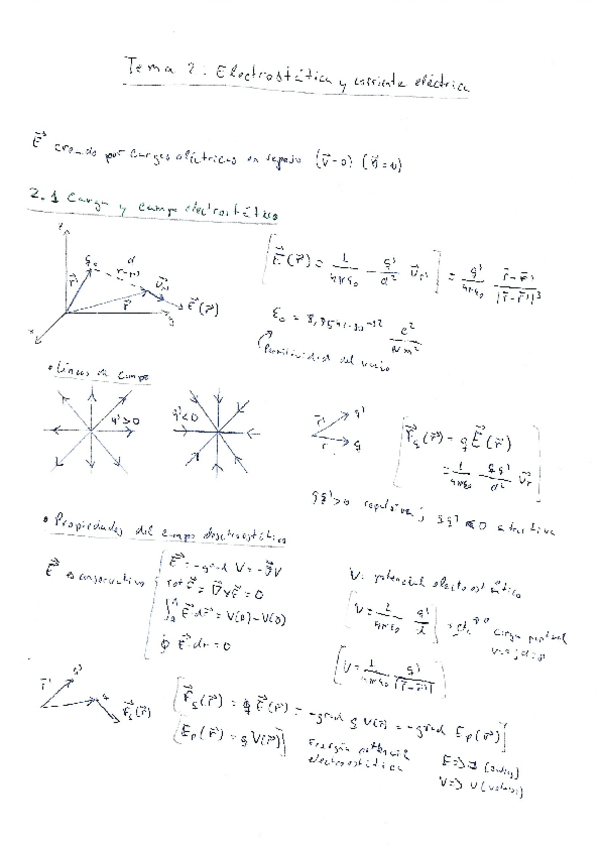 Tema 2: Electrostática y corriente eléctrica
E⃗ creado por cargas eléctricas en reposo (v⃗=0)
2.1 Carga y campo electrostático
z
d
r-r'
r⃗'
r⃗
E⃗(r⃗)
x
y
[E⃗(r⃗) = 1/4πε₀ q'/d² u⃗r'] = q'/4πε₀ (r⃗-r⃗')/|r⃗-r⃗'|³
Permitividad del vacío
• Líneas de campo
q'>0
q'<0
r⃗'
q'
r
q
[F⃗q(r⃗) = q E⃗(r⃗)
= 1/4πε₀ qq'/d² u⃗r]
qq'>0 repulsiva; qq'<0 atractiva
• Propiedades del campo electrostático
E⃗ es conservativo
E⃗ = -grad V = -∇⃗V
rot E⃗ = ∇⃗×E⃗ = 0
∮ E⃗ dr = 0
V: potencial electrostático
[V = 1/4πε₀ q'/d]
carga puntual
[V = 1/4πε₀ q'/|r⃗-r⃗'|]
r⃗'
q'
q
F⃗q(r⃗)
[F⃗q(r⃗) = q E⃗(r⃗) = -grad q V(r⃗) = -grad Ep(r⃗)]
[Ep(r⃗) = q V(r⃗)]
Energía potencial
electrostática
E => J (Julios)
V => V (voltios)